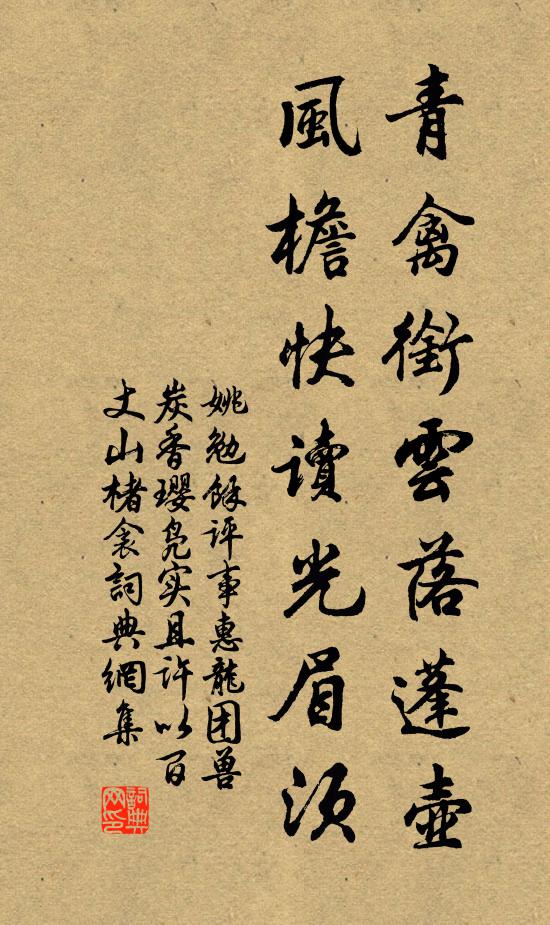 青禽銜雲落蓬壺
風檐快讀光眉須
姚勉餘評事惠龍团兽
炭香璎凫实且許以百
丈山楮衾詞典網集
詞典
网印